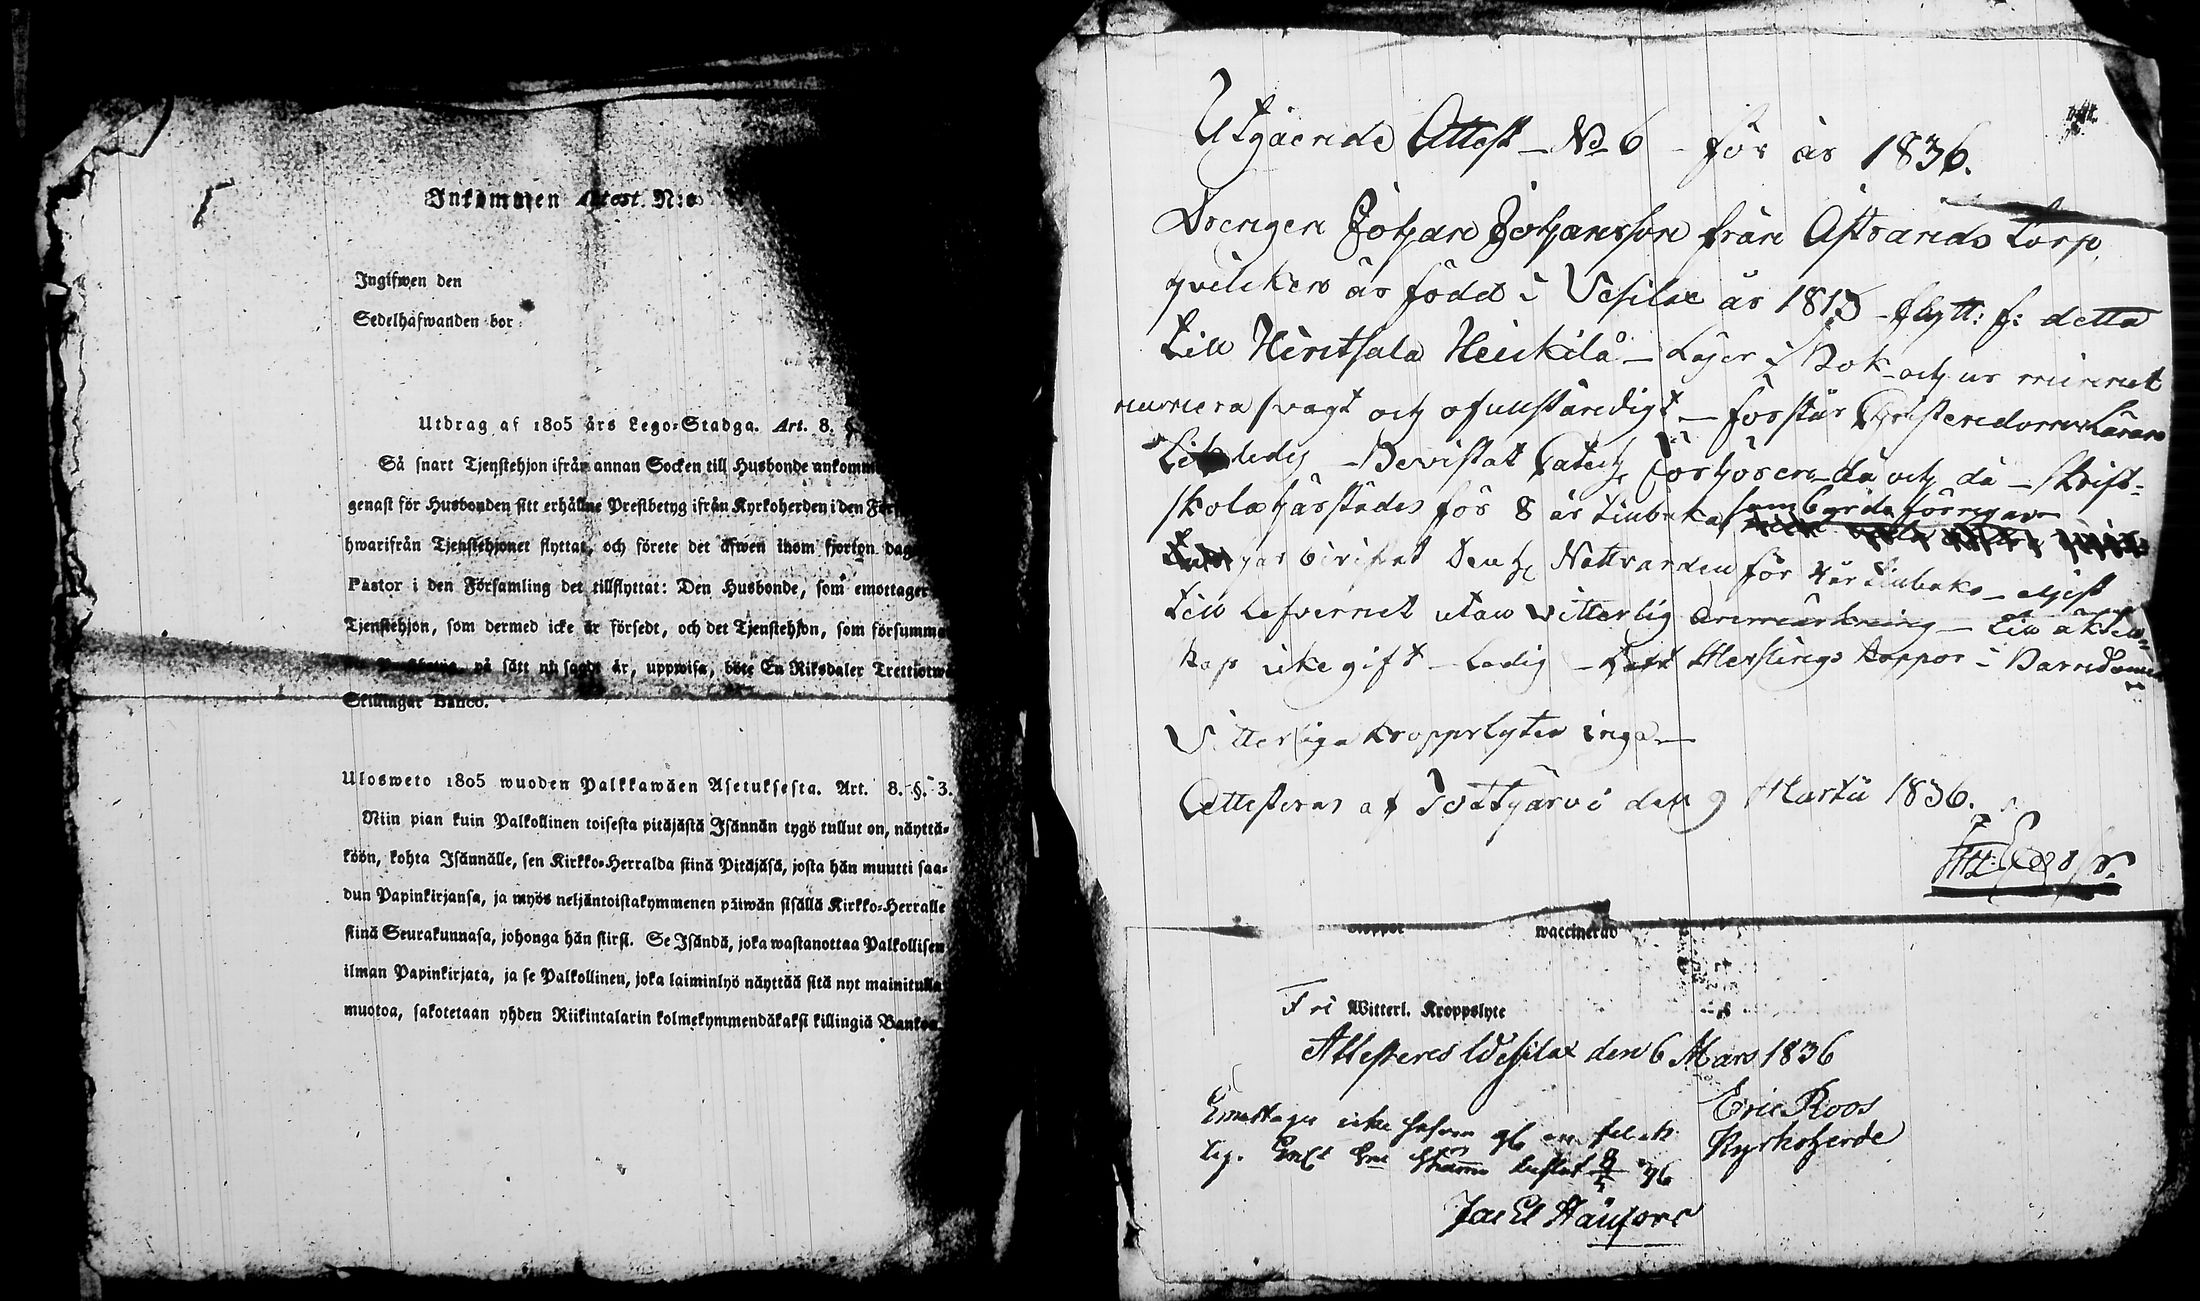 Inkommen Attest N:o
Ingifwen den
Sedelhafwanden bor
Utdrag af 1805 års Lego-Stadga. Art. 8. §.
Så snart Tjenstehjon ifrån annan Socken till Husbonde ankommi
genast för Husbonden sitt erhållne Prestbetyg ifrån Kyrkoherden i den För
hwarifrån Tjenstehjonet flyttat, och förete det äfwen inom fjorton dag
Pastor i den Församling det tillflyttat: Den Husbonde, som emottager
Tjenstehjon, som dermed icke är försedt, och det Tjenstehjon, som försumma
på sätt nu sagdt är, uppwisa, böte En Riksdaler Trettiotwå
Skillingar Banco.
Ulosweto 1805 wuoden Palkkawäen Asetuksesta. Art. 8. §. 3.
Niin pian kuin Palkollinen toisesta pitäjästä Isännän tygö tullut on, näyttä-
köön, kohta Isännälle, sen Kirkko-Herralda siinä Pitäjäsä, josta hän muutti saa-
dun Papinkirjansa, ja myös neljäntoistakymmenen päiwän sisällä Kirkko-Herralle
siinä Seurakunnasa, johonga hän siirsi. Se Isändä, joka wastanottaa Palkollisen
ilman Papinkirjata, ja se Palkollinen, joka laiminlyö näyttää sitä nyt mainitulla
muotoa, sakotetaan yhden Riikintalarin kolmekymmendäkaksi killingiä Bankoa.
Utgående Attest No 6 för år 1836.
Drengen Johan Johansson från Åstrands torp,
hvilken är född i Vesilax år 1813 flytt: f: detta
till Hintsala Heikkilä – Läser i Bok och ur minnet
svagt och ofullständigt – förstår Christendoms Läran
ledig – Bevistat Catech Förhören då och då – skrift-
skola härstädes för 8 år tillbaka, som började förregår
har bevistat Den H. Nattvarden för 4 år tillbaka –
till Lefvernet utan vitterlig anmärkning – till äkten-
skap icke gift – Ledig – haft Messlings koppor i Barndomen
Vitterliga kroppslyten inga –
Attesteras af Tottijärvi den 9 Martii 1836.
koppor waccinerad
Fri Witterl. Kroppslyte
Attesteras Wesilax den 6 Mars 1836
Eric Roos
Kyrkoherde